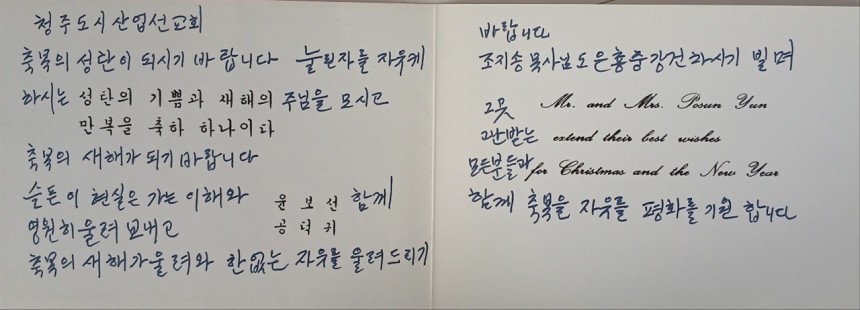 청주도시산업선교회
축복의 성탄이 되시기 바랍니다 눌린자를 자유케
하시는 성탄의 기쁨과 새해의 주님을 모시고
만복을 축하 하나이다
축복의 새해가 되기 바랍니다
슬픈 이 현실은 가는 이해와 윤보선 함께
영원히 울려 보내고 공덕귀
축복의 새해가 울려와 한없는 자유를 울려드리기
바랍니다
조지송 목사님도 은총중 강건하시기 빌며
그곳 Mr. and Mrs. Posun Yun
고난받는 extend their best wishes
모든분들과 for Christmas and the New Year
함께 축복을 자유를 평화를 기원 합니다